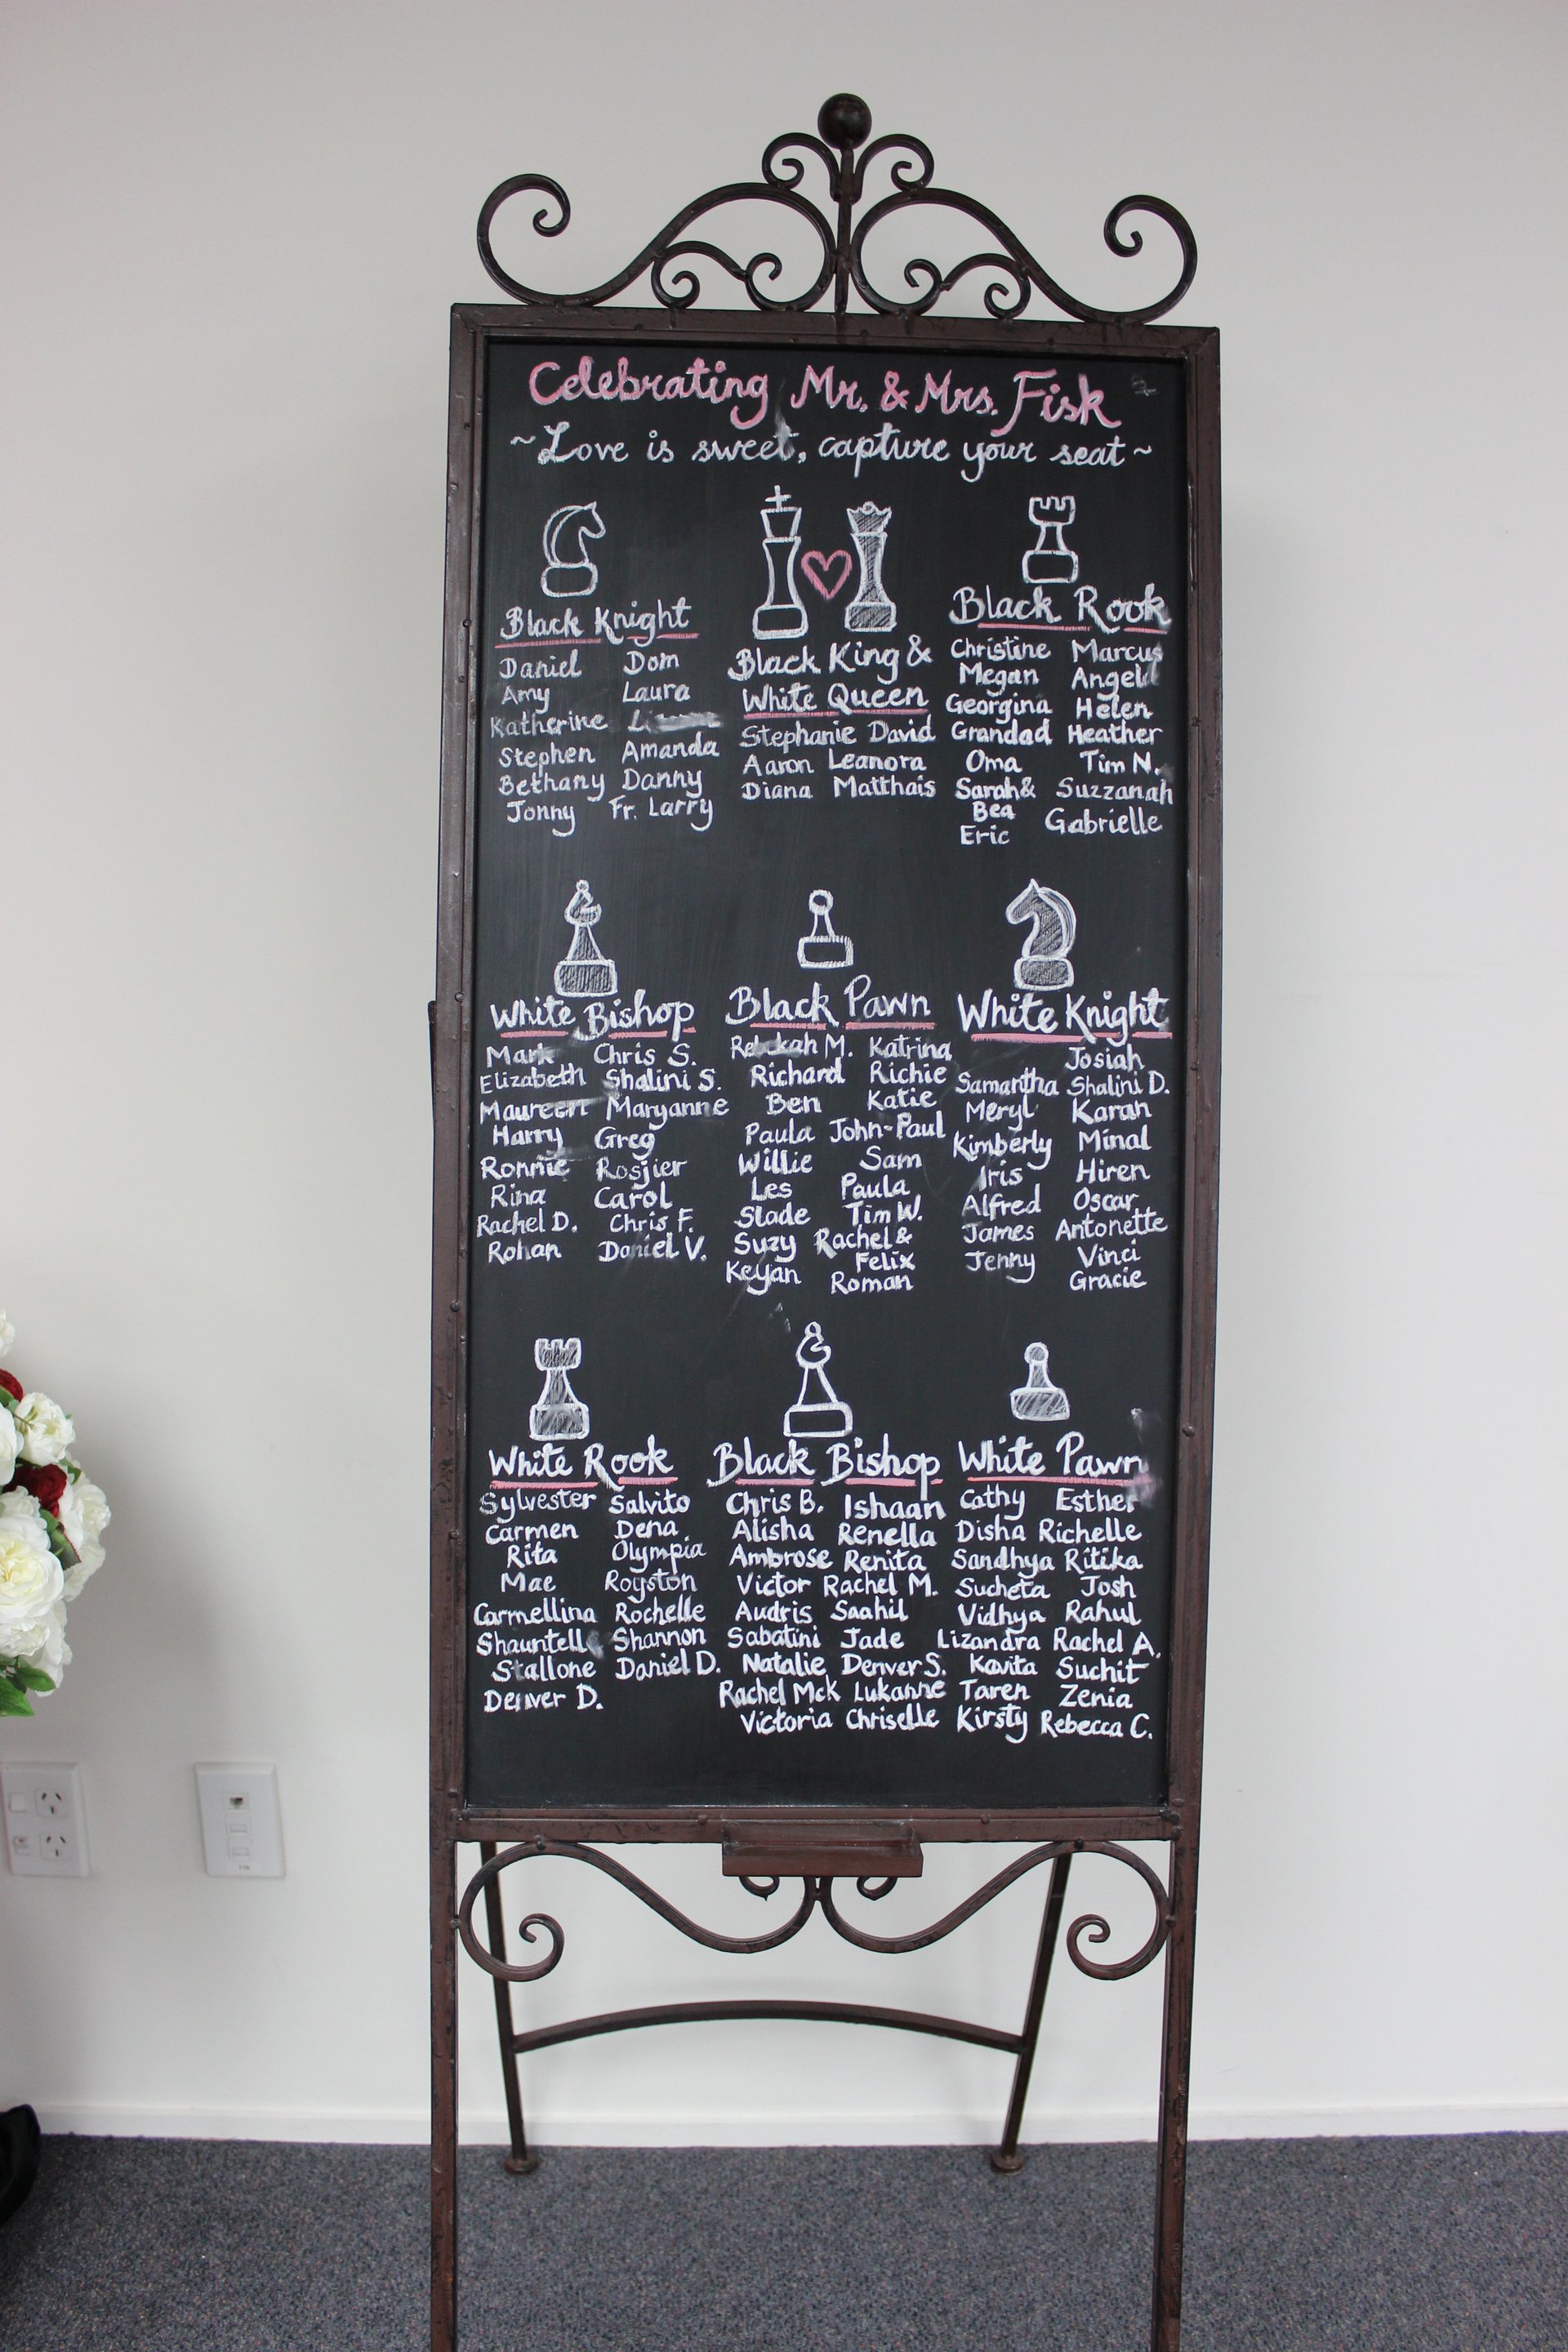 Celebrating Mr. & Mrs. Fisk
~Love is sweet, capture your seat~
Black Knight
Daniel Dom
Amy Laura
Katherine
Stephen Amanda
Bethany Danny
Jonny Fr. Larry
Black King &
White Queen
Stephanie David
Aaron Leanora
Diana Matthais
Black Rook
Christine Marcus
Megan Angela
Georgina Helen
Grandad Heather
Oma Tim N.
Sarah& Suzzanah
Bea
Eric Gabrielle
White Bishop
Mark Chris S.
Elizabeth Shalini S.
Maureen Maryanne
Harry Greg
Ronnie Rosjier
Rina Carol
Rachel D. Chris F.
Rohan Daniel V.
Black Pawn
Rebekah M. Katrina
Richard Richie
Ben Katie
Paula John-Paul
Willie Sam
Les Paula
Slade Tim W.
Suzy Rachel &
Felix
Keyan Roman
White Knight
Josiah
Samantha Shalini D.
Meryl Karan
Kimberly Minal
Iris Hiren
Alfred Oscar
James Antonette
Jenny Vinci
Gracie
White Rook
Sylvester Salvito
Carmen Dena
Rita Olympia
Mae Royston
Carmellina Rochelle
Shauntelle Shannon
Stallone Daniel D.
Denver D.
Black Bishop
Chris B. Ishaan
Alisha Renella
Ambrose Renita
Victor Rachel M.
Audris Saahil
Sabatini Jade
Natalie Denver S.
Rachel McK Lukanne
Victoria Chriselle
White Pawn
Cathy Esther
Disha Richelle
Sandhya Ritika
Sucheta Josh
Vidhya Rahul
Lizandra Rachel A.
Kavita Suchit
Taren Zenia
Kirsty Rebecca C.